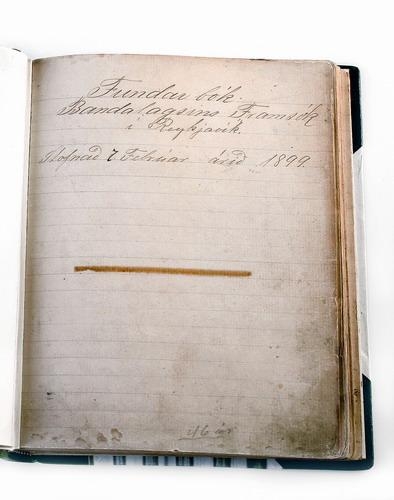 Fundar bók.
Bandalagsins Framsók
í Reykjavík.
Stofnað 7 Febrúar árið 1899.